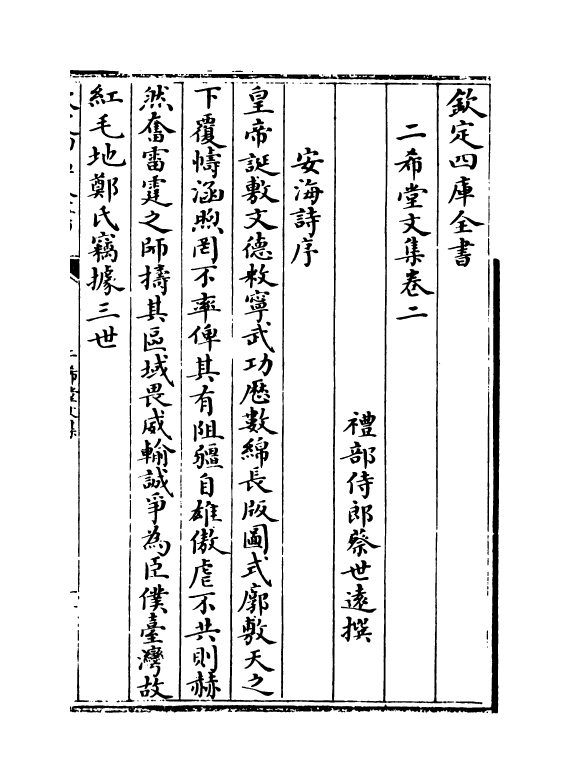 欽定四庫全書
二希堂文集卷二
禮部侍郎蔡世遠撰
安海詩序
皇帝誕敷文德敉寧武功歷數綿長版圖式廓敷天之
下覆幬涵煦罔不率俾其有阻疆自雄傲虐不共則赫
然奮雷霆之師擣其區域畏威輸誠爭為臣僕臺灣故
紅毛地鄭氏竊據三世
二希堂文集